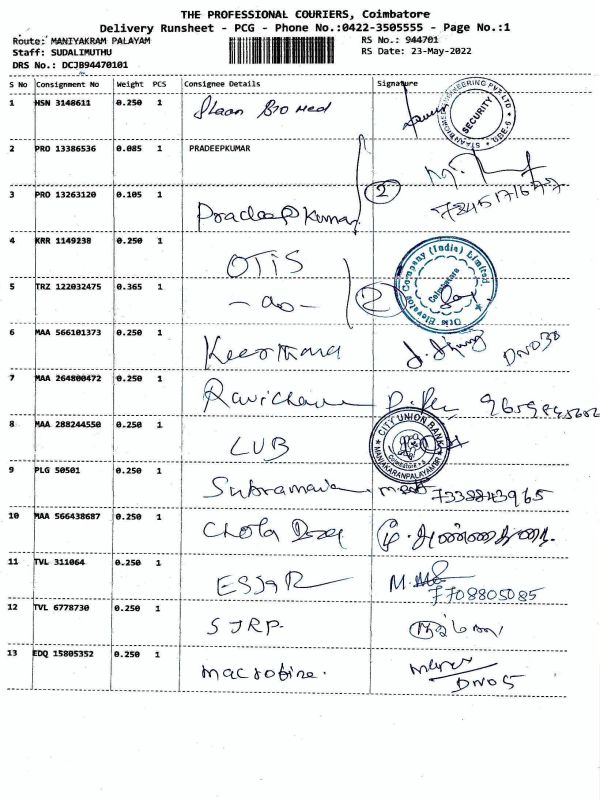 THE PROFESSIONAL COURIERS, Coimbatore
Delivery Runsheet - PCG - Phone No.:0422-3505555 - Page No.:1
Route: MANIYAKRAM PALAYAM RS No.: 944701
Staff: SUDALIMUTHU RS Date: 23-May-2022
DRS No.: DCJB94470101
S No Consignment No Weight PCS Consignee Details Signature
1 HSN 3148611 0.250 1 Staan Bio Med
SECURITY
2 PRO 13386536 0.085 1 PRADEEPKUMAR
2
3 PRO 13263120 0.105 1 Pradeep Kumar
4 KRR 1149238 0.250 1 OTIS
Otis Elevator Company (India) Limited
Coimbatore
5 TRZ 122032475 0.365 1 - do -
2
6 MAA 566101373 0.250 1 Keerthana DNO 30
7 MAA 264800472 0.250 1
8 MAA 288244550 0.250 1 CUB
CITY UNION BANK
9 PLG 50501 0.250 1 7338843965
10 MAA 566438687 0.250 1 Chola
11 TVL 311064 0.250 1 ESSAR 7708805085
12 TVL 6778730 0.250 1 SJRP.
13 EDQ 15805352 0.250 1 macrofire.
DNO 5